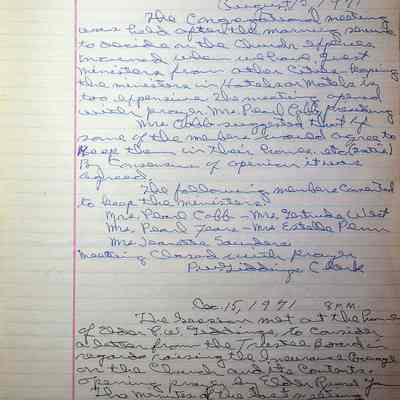 August 15, 1971
The Congregational meeting
was held after the morning service
to decide on the Church expences
incured when we have guest
ministers from other Cities. Keeping
the ministers in Hotels or Motels is
too expensive. The meeting opened
with prayer Mrs. Pearl Cobb presiding
Mrs Cobb suggested that if
some of the members would agree to
keep them in their homes. etc.
By Consensus of openion it was
agreed.
The following members Consented
to keep the ministers:
Mrs. Pearl Cobb - Mrs. Gertrude West
Mrs. Pearl - Mrs Estella Penn
Mrs Jeanette Saunders
Meeting Closed with prayer
Clerk
Dec. 15, 1971 8 P.M.
The Session met at the home
of Elder P.W. Giddings, to consider
a letter from the Trustee Board in
regards raising the Insurance Coverage
on the Church and its Contents.
opening prayer by Elder Pearl
The Minutes of the last meeting